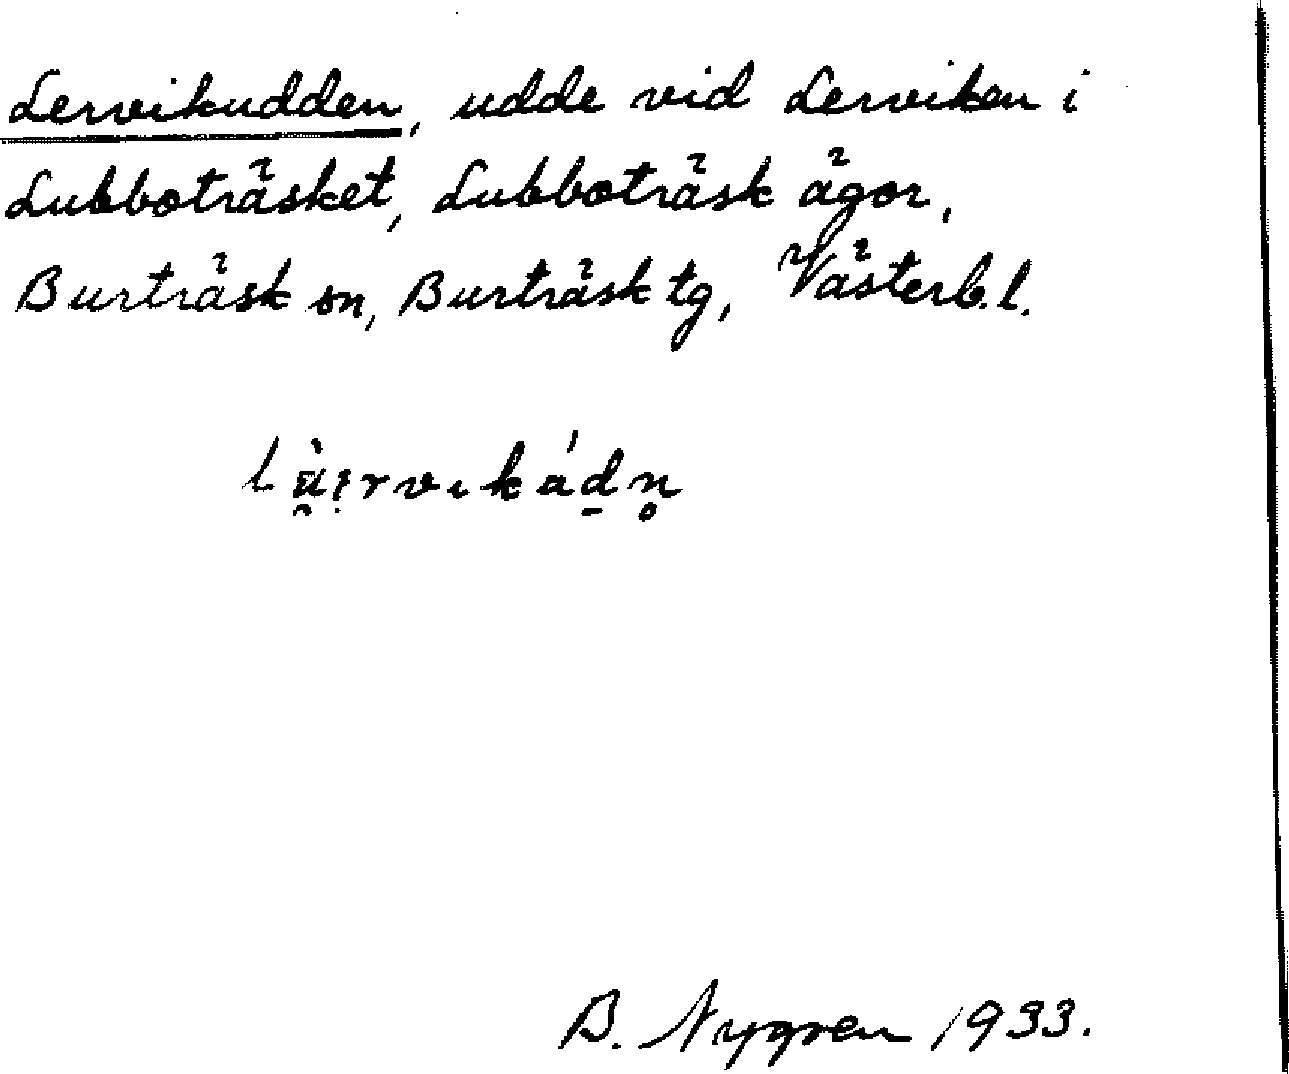 Lervikudden, udde vid Lerviken i
Lubboträsket, Lubboträsk ägor,
Burträsk sn, Burträsk tg, Västerb. l.
B. Nygren 1933.